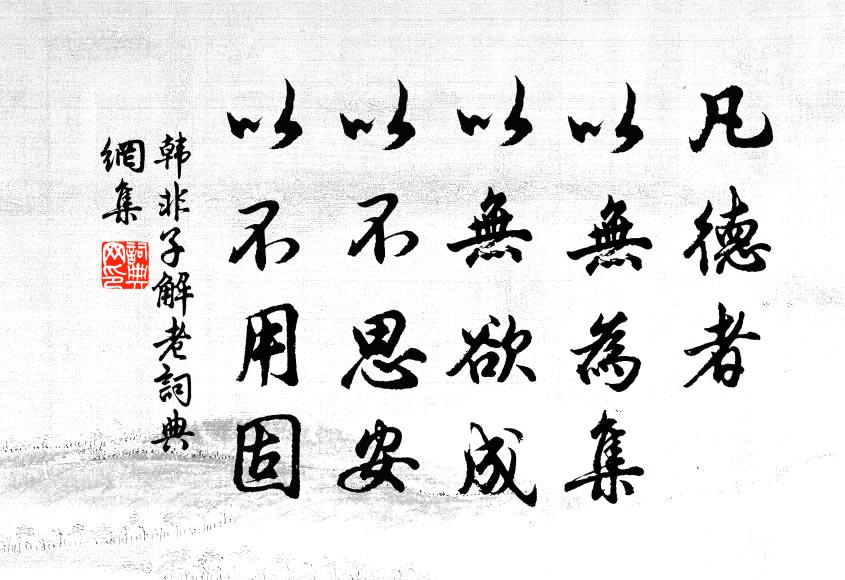 凡德者
以無為集
以無欲成
以不思安
以不用固
韩非子解老詞典
網集
詞典
网印